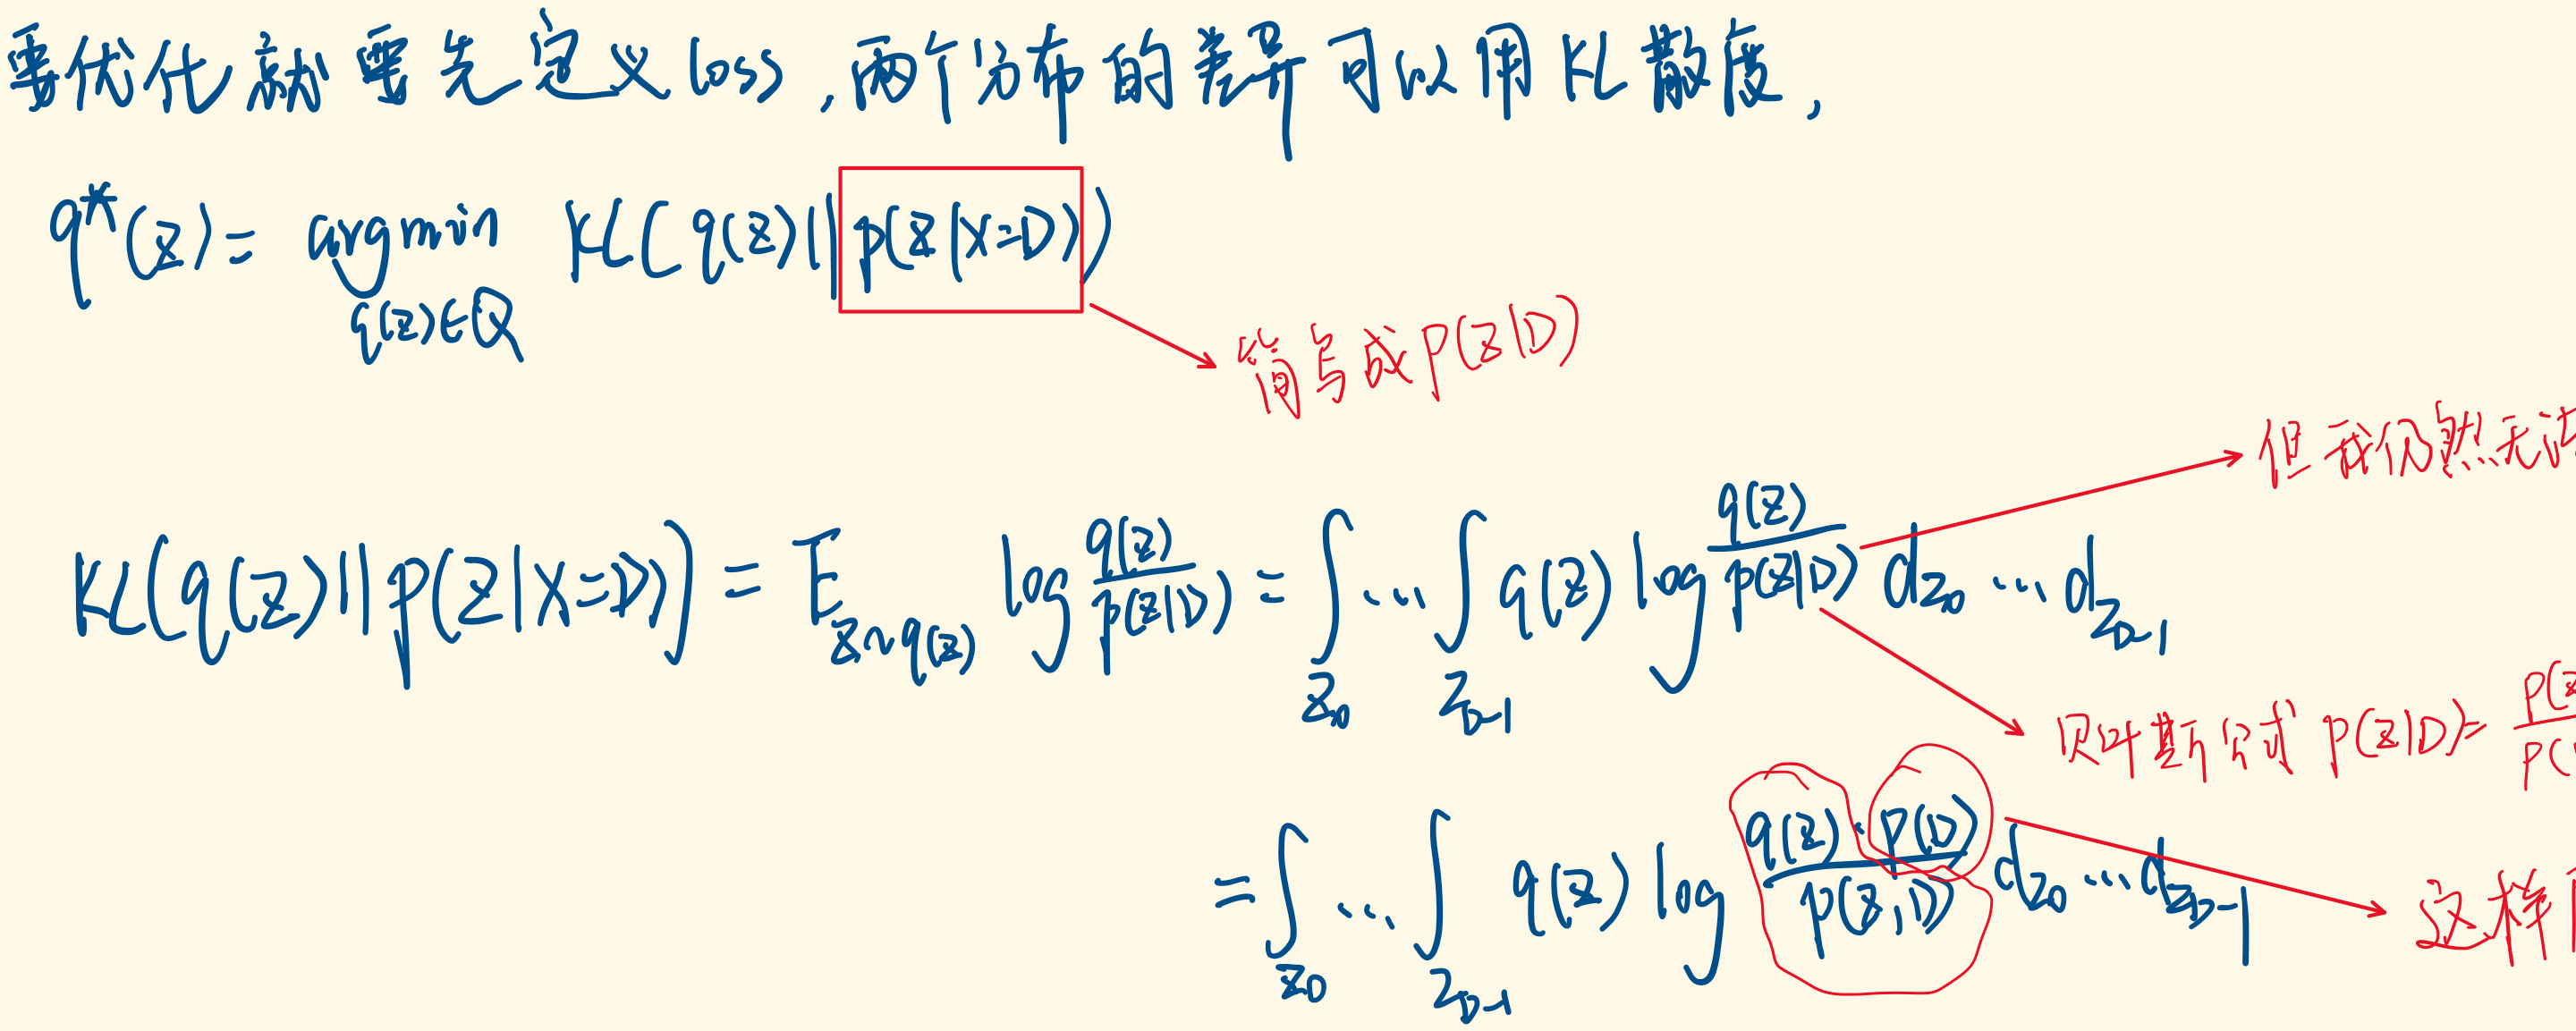 需优化就需先定义loss,两个分布的差异可以用KL散度,
q*(z)= argmin KL(q(z)||p(z|X=D))
q(z)∈Q
简写成p(z|D)
但我仍然无法
KL(q(z)||p(z|X=D)) = E_{z~q(z)} log q(z)/p(z|D) = ∫_{z_0} ... ∫_{z_{D-1}} q(z) log q(z)/p(z|D) d_{z_0} ... d_{z_{D-1}}
贝叶斯公式 p(z|D)= p(z / p(
= ∫_{z_0} ... ∫_{z_{D-1}} q(z) log q(z)·p(D)/p(z,D) d_{z_0} ... d_{z_{D-1}}
这样